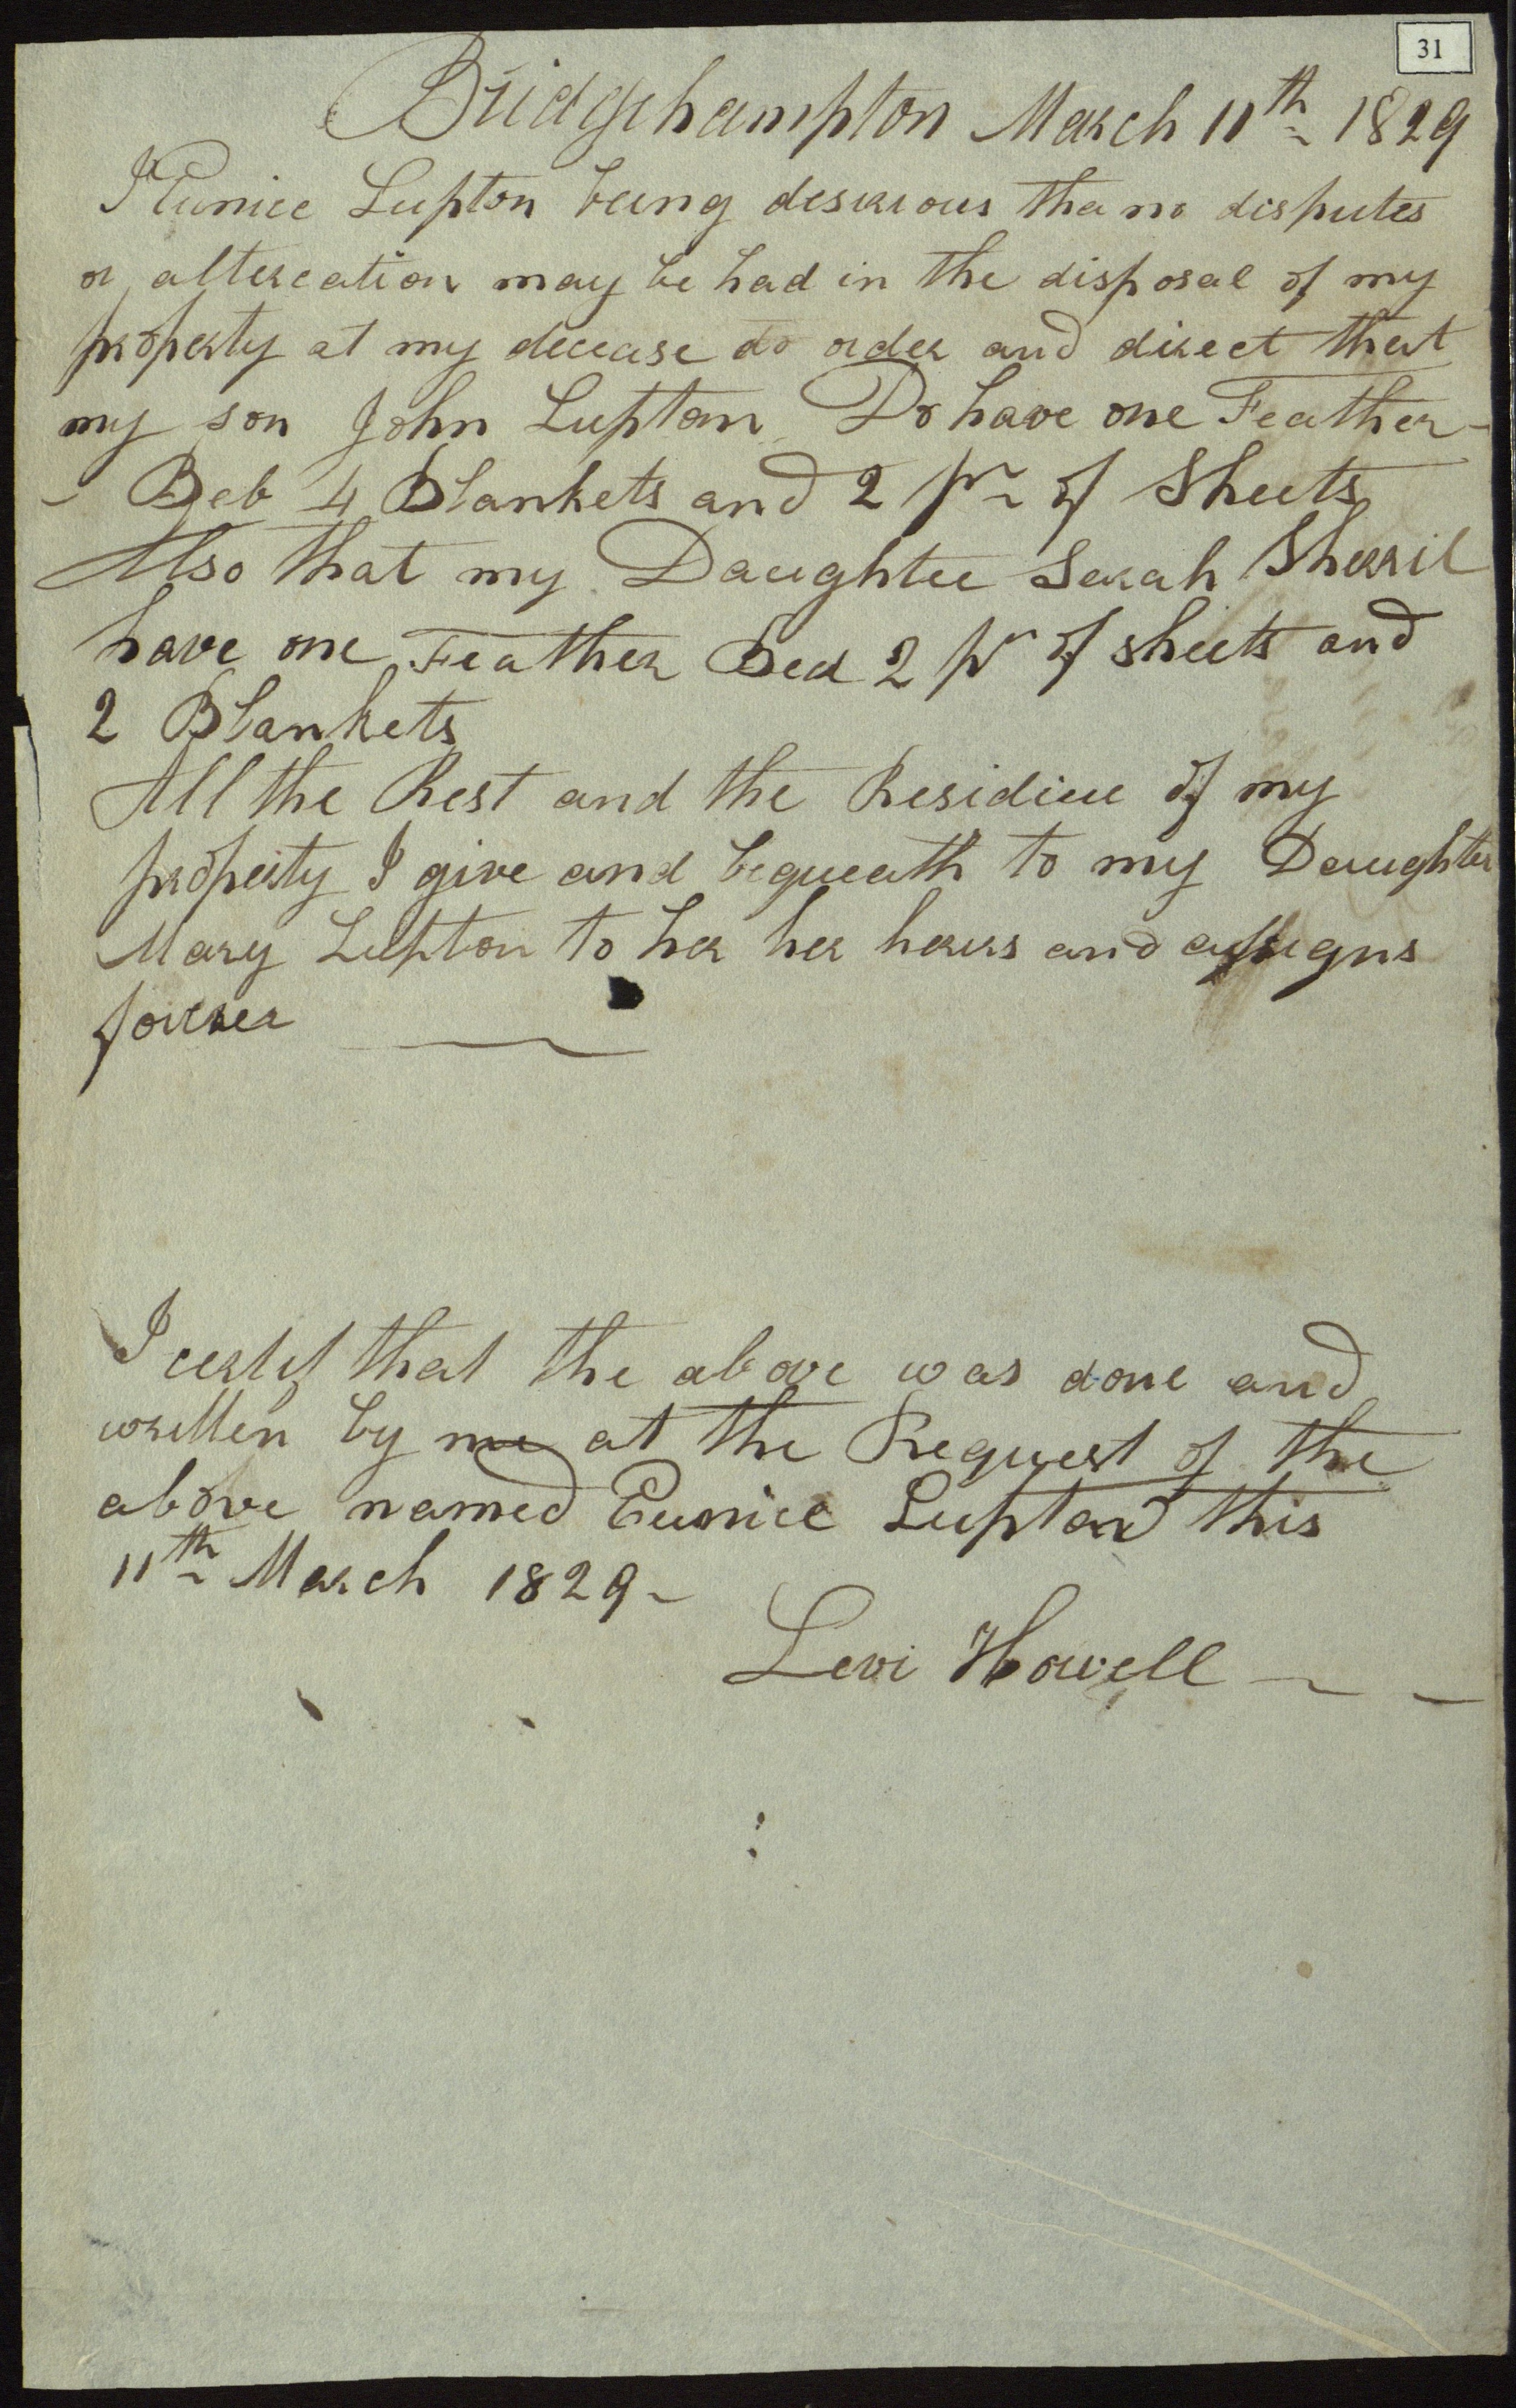 31
Bridgehampton March 11th 1829
I Eunice Lupton being desirious tha no disputes
or altercation may be had in the disposal of my
property at my decease do order and direct that
my son John Lupton Do have one Feather-
- Beb 4 Blankets and 2 pr of Sheets
Also that my Daughter Sarah Sherril
have one Feather Bed 2 pr of sheets and
2 Blankets
All the Rest and the Residiue of my
property I give and bequeath to my Daughter
Mary Lupton to her her heirs and assigns
forever
I certif that the above was done and
written by me at the Request of the
above named Eunice Lupton this
11th March 1829-
Levi Howell